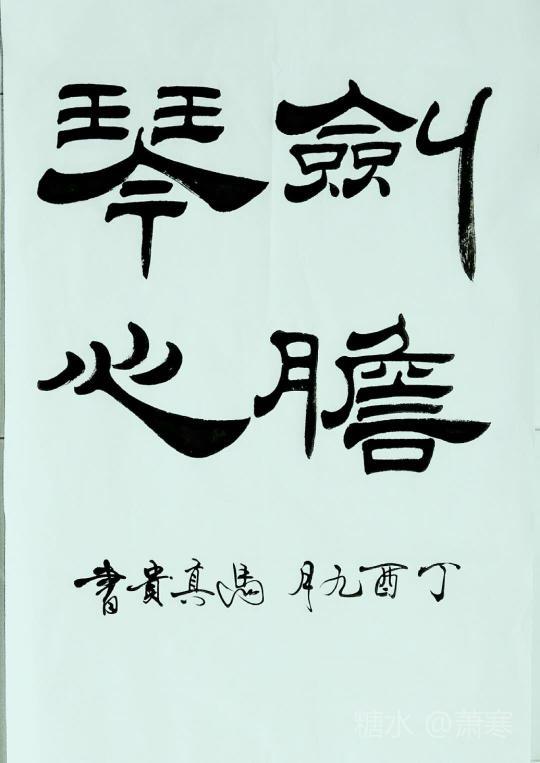 劍膽
琴心
丁酉九月 馮真貴書
糖水 @萧寒